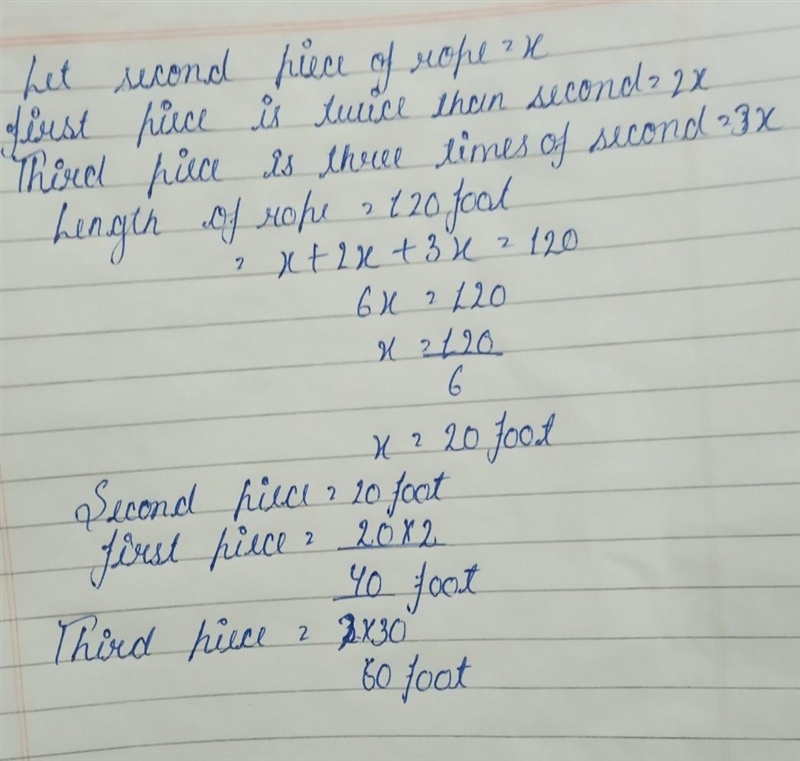 Let second piece of rope = x
first piece is twice than second = 2x
Third piece is three times of second = 3x
Length of rope = 120 foot
= x + 2x + 3x = 120
6x = 120
x = 120
6
x = 20 foot
Second piece = 20 foot
first piece = 20 x 2
40 foot
Third piece = x 30
60 foot